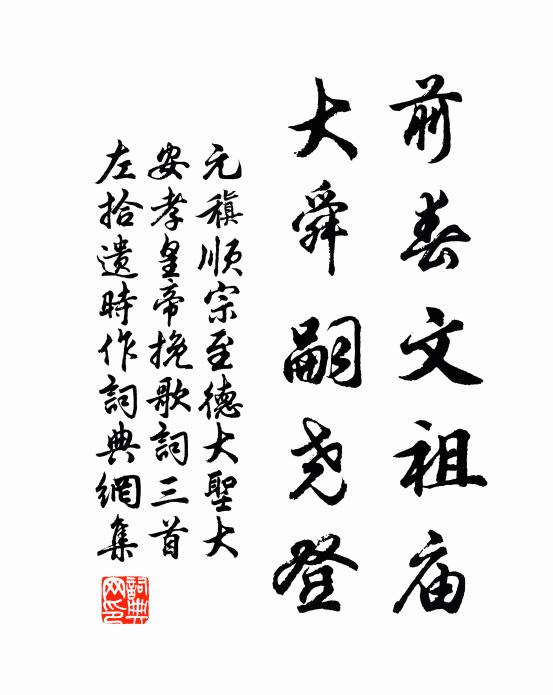 前春文祖庙
大舜嗣尧登
元稹顺宗至德大聖大
安孝皇帝挽歌詞三首
左拾遗時作詞典網集
詞典
网印